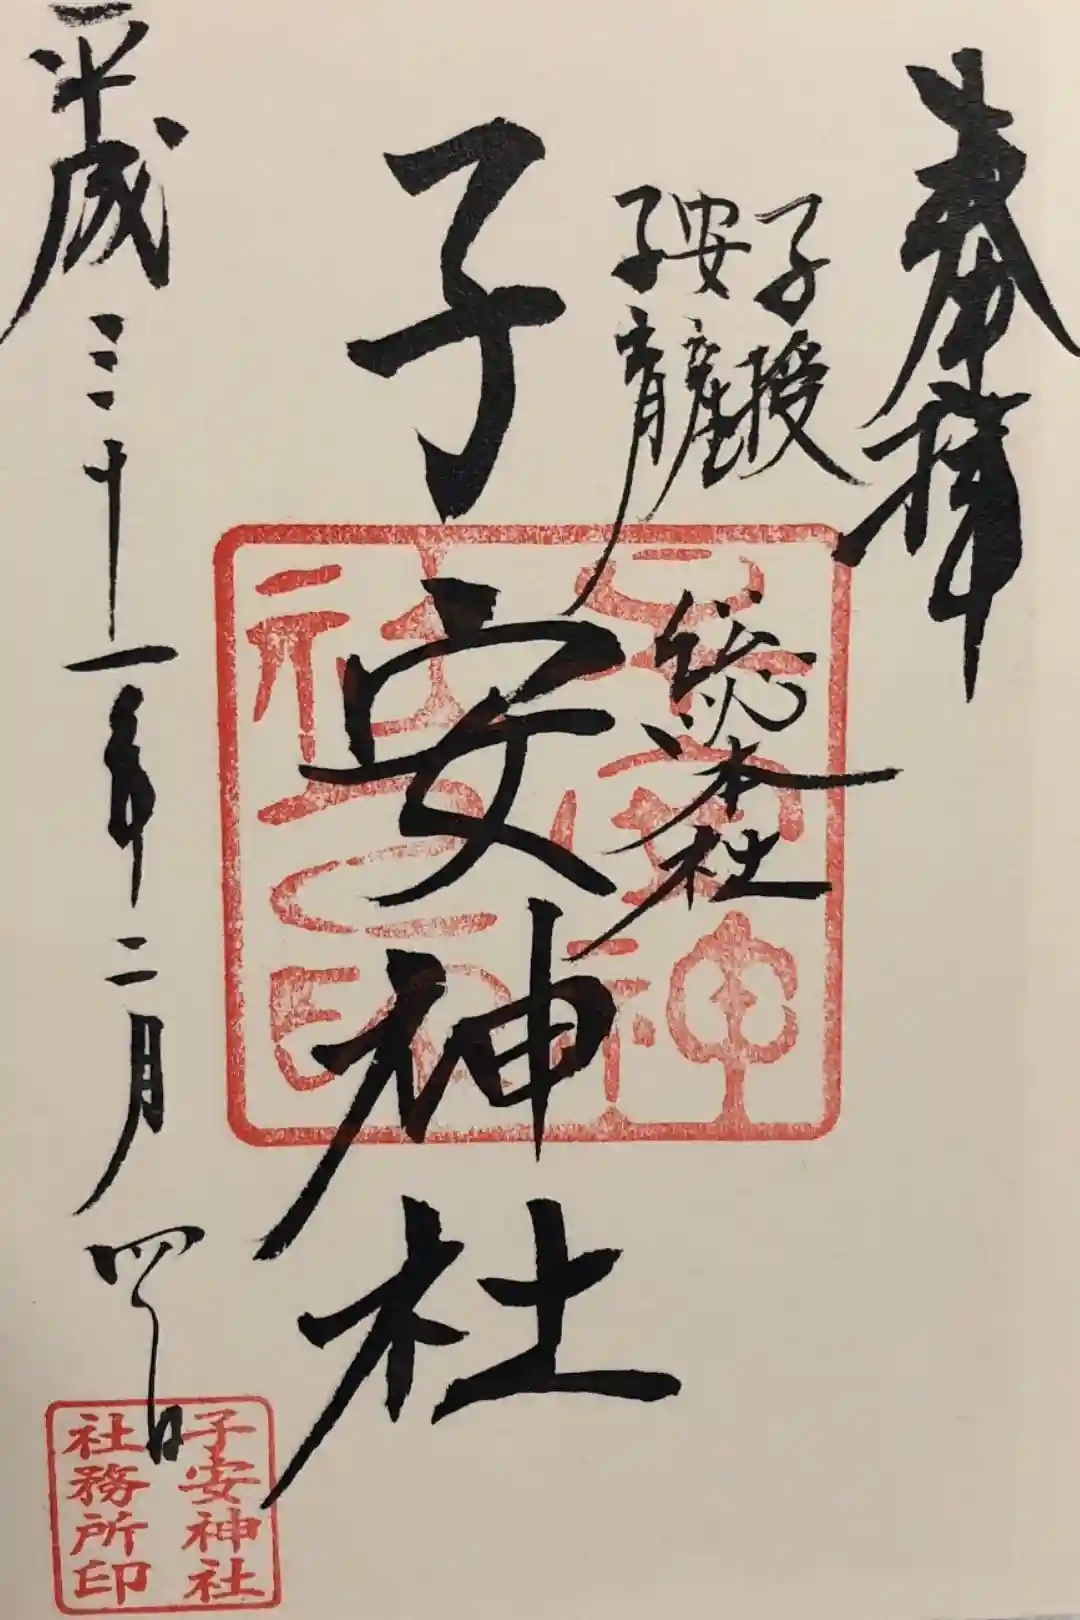 奉拝
子授
安産
子育
総本社
子安神社
子安神社之印
平成三十一年二月四日
子安神社
社務所印